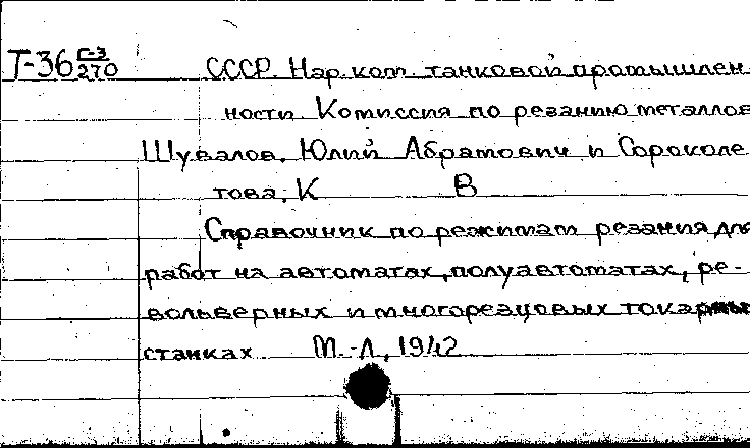 Т-36 Г-3/270 СССР. Нар. ком. танковой промышлен-
ности Комиссия по резанию металлов
Шувалов, Юлий Абрамович и Сороколе-
това, К В
Справочник по режимам резания для
работ на автоматах, полуавтоматах, ре-
вольверных и многорезцовых токарных
станках М.-Л, 1942